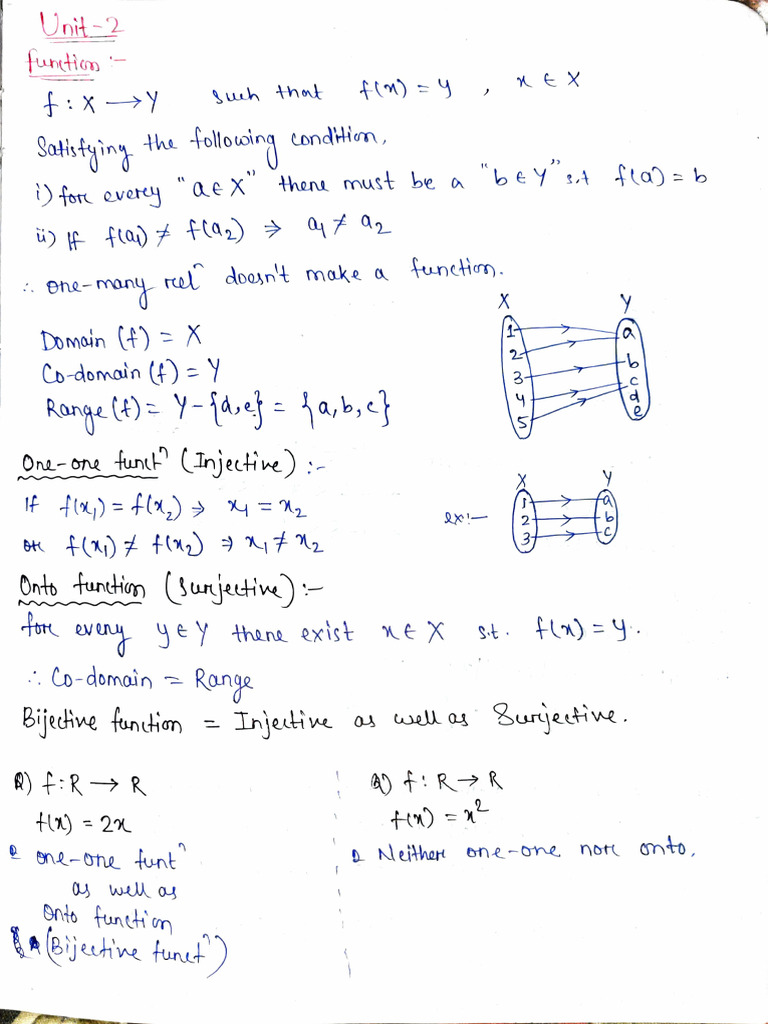 Unit-2
function :-
f : X → Y such that f(x) = y , x ∈ X
Satisfying the following condition,
i) for every "a ∈ X" there must be a "b ∈ Y" s.t f(a) = b
ii) If f(a1) ≠ f(a2) ⇒ a1 ≠ a2
∴ one-many relⁿ doesn't make a function.
Domain (f) = X
Co-domain (f) = Y
Range (f) = Y - {d,e} = {a,b,c}
X Y
1 a
2 b
3 c
4 d
5 e
One-one functⁿ (Injective) :-
If f(x1) = f(x2) ⇒ x1 = x2
or f(x1) ≠ f(x2) ⇒ x1 ≠ x2
ex:-
X Y
1 a
2 b
3 c
Onto function (Surjective) :-
for every y ∈ Y there exist x ∈ X s.t. f(x) = y.
∴ Co-domain = Range
Bijective function = Injective as well as Surjective.
Q) f : R → R
f(x) = 2x
one-one funtⁿ
as well as
Onto function
(Bijective functⁿ)
Q) f : R → R
f(x) = x²
Neither one-one nor onto.